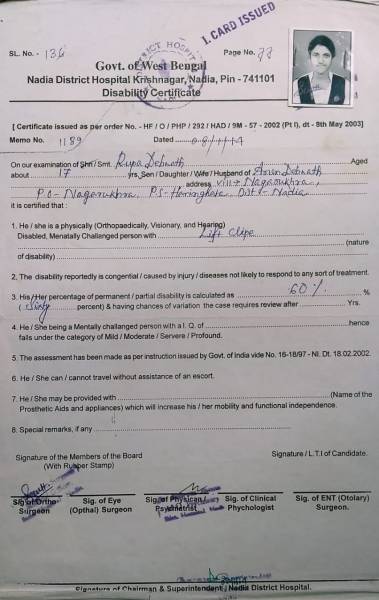 I. CARD ISSUED
SL. No. - 136
Page No. 73
DISTRICT HOSPITAL
Govt. of West Bengal
Nadia District Hospital Krishnagar, Nadia, Pin - 741101
Disability Certificate
[ Certificate issued as per order No. - HF / O / PHP / 292 / HAD / 9M - 57 - 2002 (Pt I), dt - 8th May 2003]
Memo No. 1189 Dated
On our examination of Shri / Smt. Rupa Debnath Aged
about 17 yrs, Son / Daughter / Wife / Husband of Debnath
address Vill + Nagarukhra,
P.O - Nagarukhra, P.S- Haringhata, Dist - Nadia
it is certified that :
1. He / she is a physically (Orthopaedically, Visionary, and Hearing)
Disabled, Menatally Challanged person with Left (nature
of disability)
2. The disability reportedly is congential / caused by injury / diseases not likely to respond to any sort of treatment.
3. His / Her percentage of permanent / partial disability is calculated as 60% %
(Sixty percent) & having chances of variation the case requires review after Yrs.
4. He / She being a Mentally challanged person with a I. Q. of hence
falls under the category of Mild / Moderate / Servere / Profound.
5. The assessment has been made as per instruction issued by Govt. of India vide No. 16-18/97 - NI. Dt. 18.02.2002.
6. He / She can / cannot travel without assistance of an escort.
7. He / She may be provided with (Name of the
Prosthetic Aids and appliances) which will increase his / her mobility and functional independence.
8. Special remarks, if any
Signature of the Members of the Board Signature / L.T.I of Candidate.
(With Rubber Stamp)
Sig of Ortho Sig. of Eye Sig. of Physican / Sig. of Clinical Sig. of ENT (Otolary)
Surgeon (Opthal) Surgeon Psychiatrist Phychologist Surgeon.
Signature of Chairman & Superintendent, Nadia District Hospital.